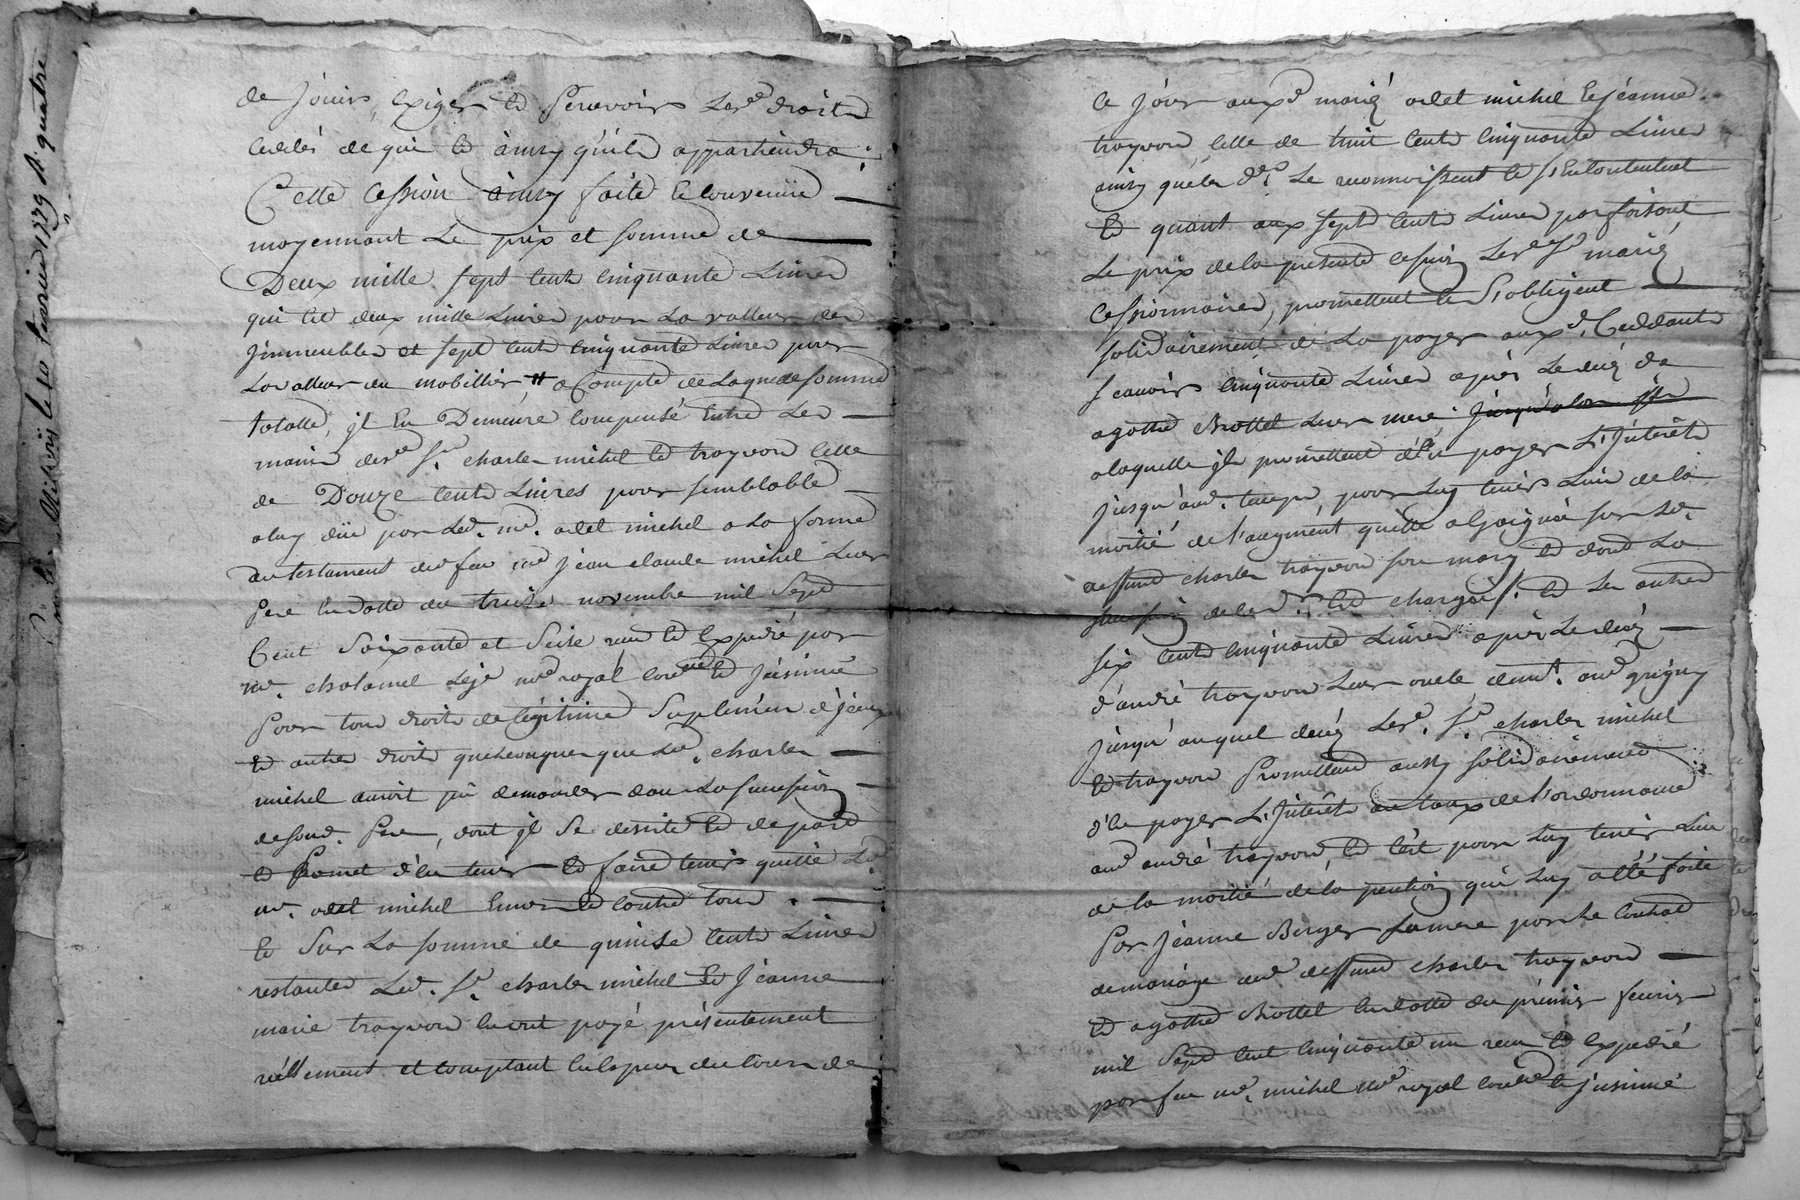 de jouir, exiger et percevoir lesd. droits
cedés de qui et ainsy qu'il appartiendra.
Cette cession ainsy faite et convenüe
moyennant le prix et somme de
Deux mille sept cent cinquante livres
qui est deux mille livres pour la valleur des
jmmeubles et sept cent cinquante livres pour
la valleur du mobillier a compte de laquelle somme
totalle, jl en Demeure compensé entre les
mains desd. Sr. charles michel et trayvon celle
de Douze cent Livres pour semblable
a luy düe par led. me. michel a la forme
du testament du feu me jean claude michel leur
pere en datte du treize novembre mil Sept
Cent Soixante et Seize reçu et expedié par
me. chalamel no.re royal et jnsinué
Pour tous droits de légitime Suplément d'jcelle
et autres droits quelconques que led. charles
michel auroit pû demander dans la succession
de sond. Pere, dont jl se desiste et depart
et Promet d'en tenir et faire tenir quitte led.
me. michel envers et contre tous.
et Sur la somme de quinse cent Livres
restantes Led. Sr. charles michel et Jeanne
marie trayvon en ont payé présentement
réellement et comptant en espèces du cours de
ce jour auxd. mariés michel et jéanne
trayvon celle de huit cent cinquante Livres
ainsy que les Se reconnoissent et s'en contentent
et quant aux sept cent Livres parfaisant
Le prix de la presente cession Lesd. Srs mariés
cessionnaires, promettent et s'obligent
solidairement de la payer auxd. Ceddants
scavoir cinquante Livres après Le décés de
agathe Leur mere,
a laquelle jls promettent d'en payer L'Jnterêts
jusqu'aud. temps, pour luy tenir Lieu de la
moitié de l'augment quelle a gaigné sur led.
deffunt charles trayvon son mary et dont la
succession est chargée. et les autres
six cent cinquante Livres après Le décés
d'andré trayvon Leur oncle aud. grigny
jusqu'auquel décés Lesd. Sr. charles michel
et trayvon Promettent aussy solidairement
d'en payer L'Jnterêts au taux de l'ordonnance
aud andré trayvon, et c'est pour Luy tenir Lieu
de la moitié de la pention qui luy a été faite
Par Jéanne Berger sa mere par le contrat
de mariage dud. deffunt charles trayvon
et agathe en datte du prémier fevrier
mil Sept cent cinquante un reçu et expedié
par feu me. michel no.re royal et jnsinué